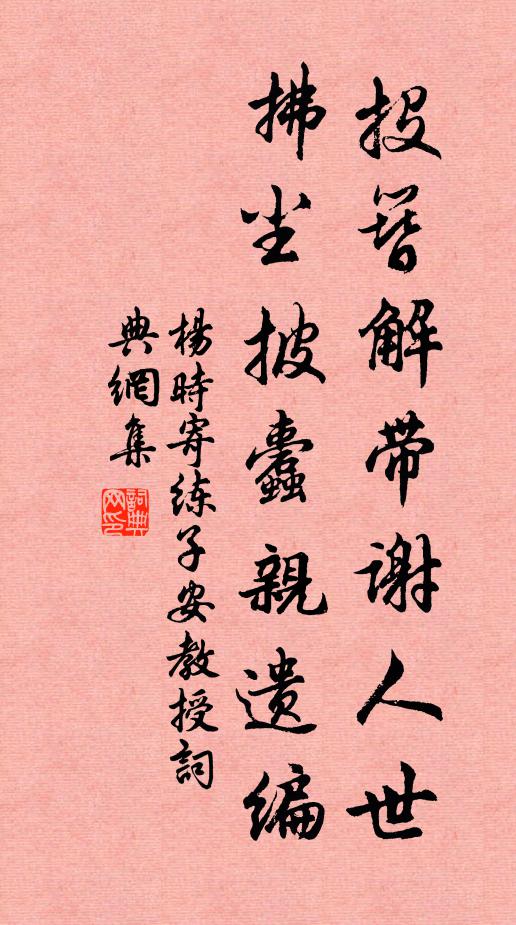 投簪解带谢人世
拂尘披蠹親遗编
楊時寄练子安教授詞
典網集
詞典网印